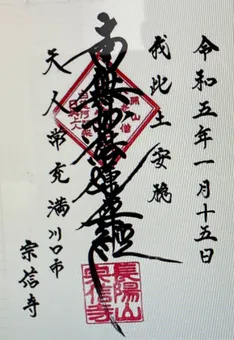 令和五年一月十五日
我此土安穏
南無妙法蓮華経
天人常充満
川口市
宗信寺
長陽山
宗信寺